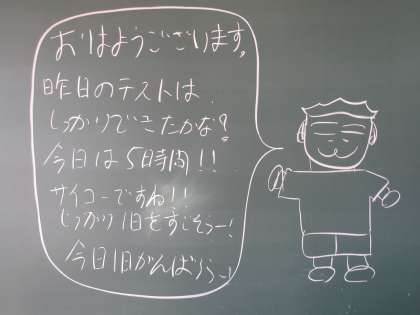 おはようございます。
昨日のテストは
しっかりできたかな?
今日は5時間!!
サイコーですね!!
しっかり1日をすごそうー!
今日1日がんばろうー!